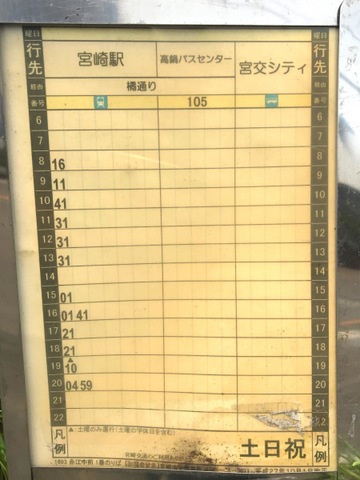 曜日 曜日
行先 宮崎駅 高鍋バスセンター 宮交シティ 行先
経由 橘通り 経由
番号 105 番号
6 6
7 7
8 16 8
9 11 9
10 41 10
11 31 11
12 31 12
13 31 13
14 14
15 01 15
16 01 41 16
17 21 17
18 21 18
19 ▲10 19
20 04 59 20
21 21
22 22
凡例 ▲:土曜のみ運行(土曜の学休日を含む) 凡例
土日祝